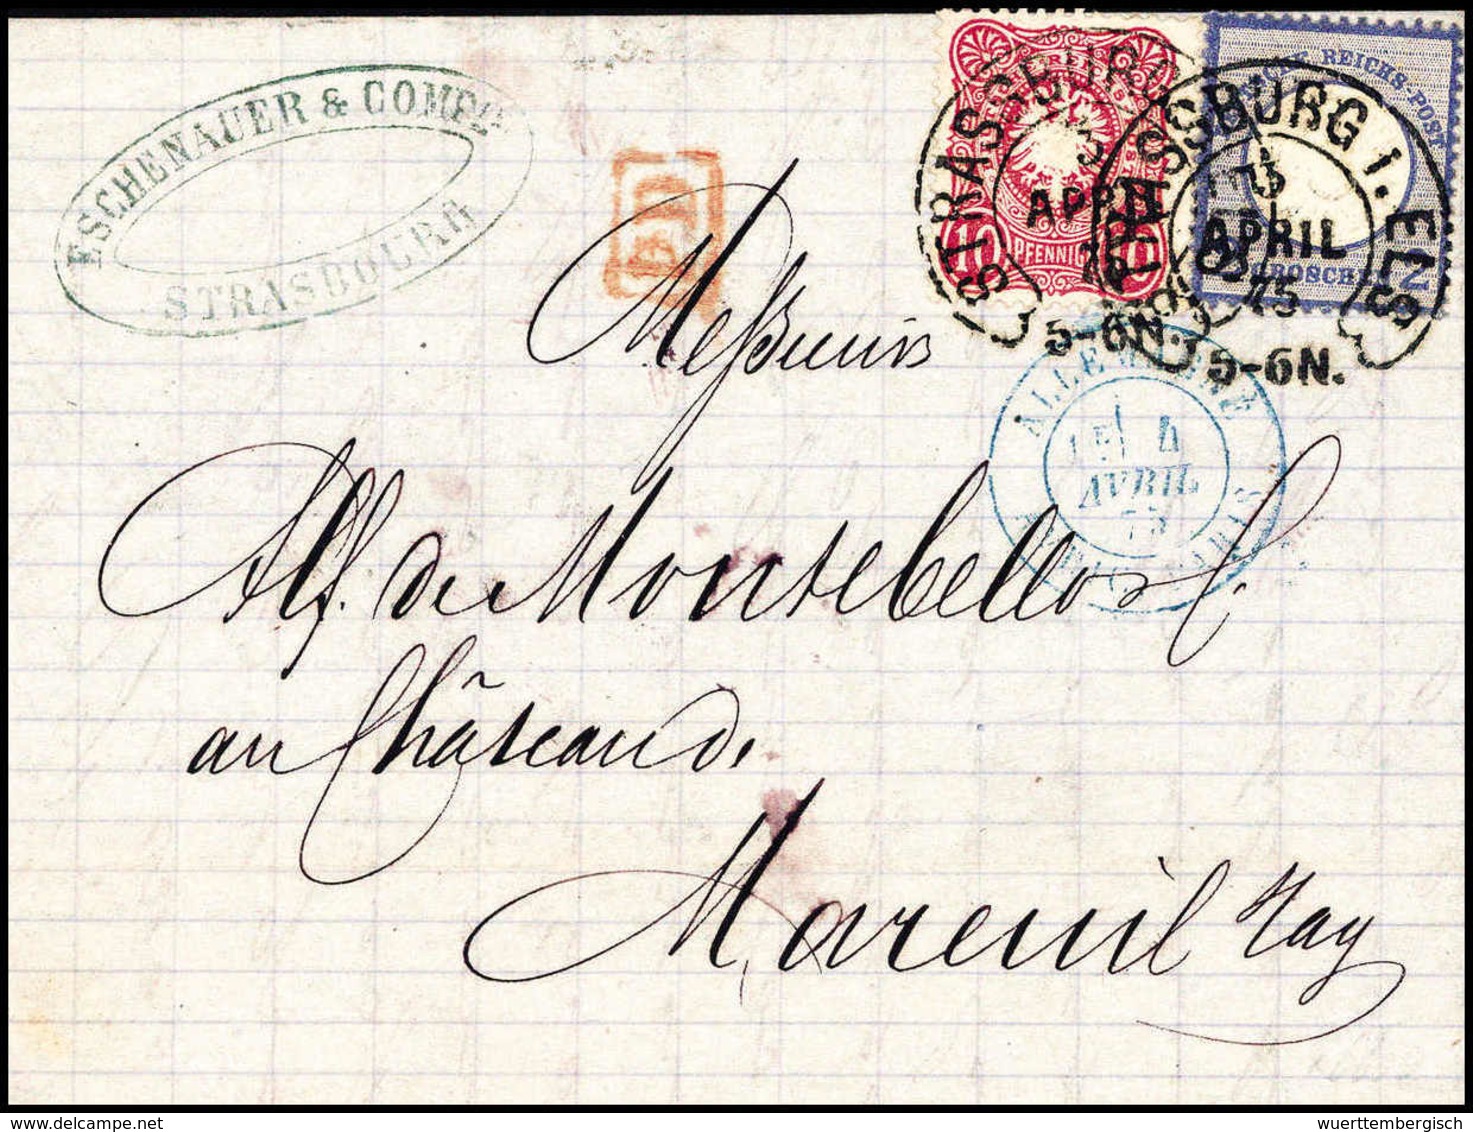 ESCHENAUER & COMP.IE
STRASBOURG
PD
STRASSBURG
APRIL
5-6N.
10 PFENNIG 10
STRASSBURG i. ELS
3
APRIL
75
5-6N.
REICHS-POST
GROSCHEN 2
ALLEMAGNE
4
AVRIL
75
Messieurs
Alf. de Montebello & C.
au Château de
Mareuil s/ay
delcampe.net
wuerttembergisch